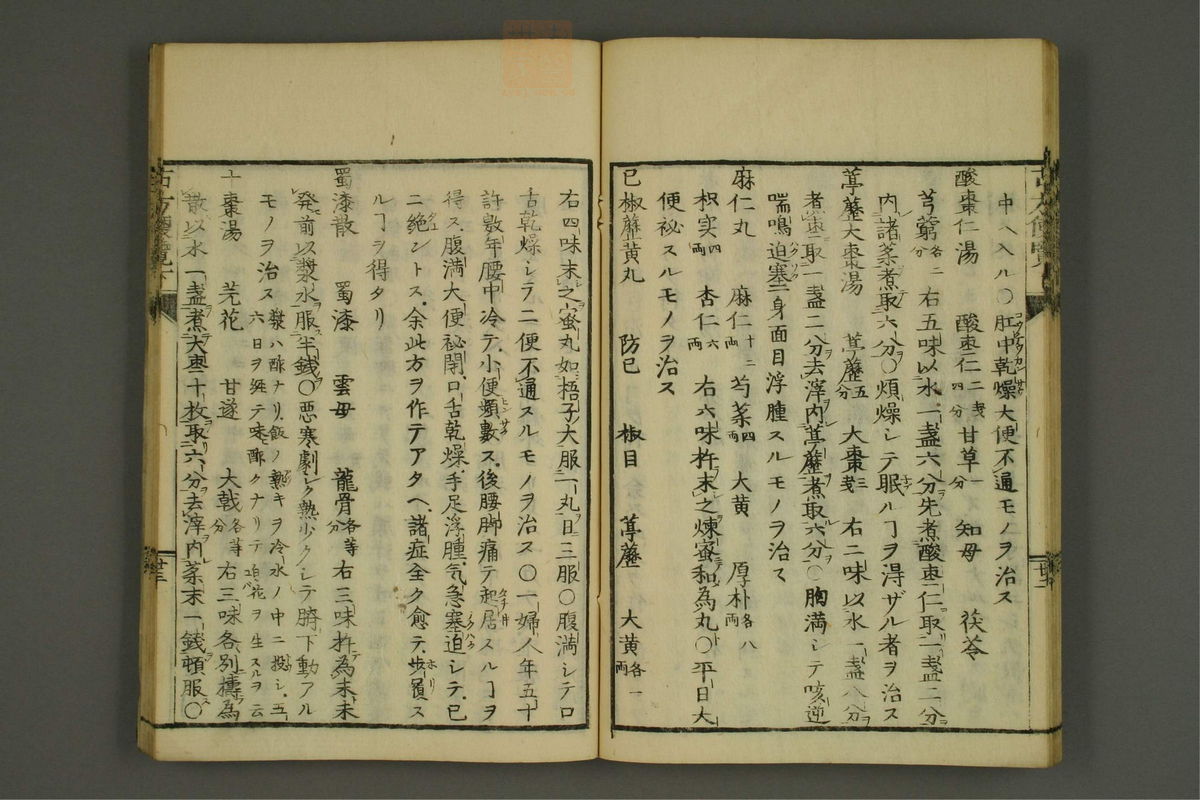 中ヘ入ル〇肛中乾燥大便不通モノヲ治ス
酸棗仁湯 酸棗仁二戔四分 甘草一分 知母 茯苓
芎藭各二分 右五味以水一盞六分先煮酸棗仁取一盞二分
内諸薬煮取六分〇煩燥シテ眠ルヿヲ得ザル者ヲ治ス
葶藶大棗湯 葶藶五分 大棗三戔 右二味以水一盞八分
煮棗取一盞二分去滓内葶藶煮取六分〇胸満シテ咳逆
喘鳴迫塞一身面目浮腫スルモノヲ治ス
麻仁丸 麻仁十二両 芍薬四両 大黄 厚朴各八両
枳実四両 杏仁六両 右六味杵末之煉蜜和為丸〇平日大
便祕スルモノヲ治ス
已椒藶黄丸 防已 椒目 葶藶 大黄各一両
古方便覧 廿二
右四味末之蜜丸如梧子大服一丸日三服〇腹満シテ口
舌乾燥シテ二便不通スルモノヲ治ス〇一婦人年五十
許数年腰中冷テ小便頻数ス後腰脚痛テ起居スルヿヲ
得ス腹満大便祕閉口舌乾燥手足浮腫気急塞迫シテ已
ニ絶ントス余此方ヲ作テアタヘ諸症全ク愈テ歩履ス
ルヿヲ得タリ
蜀漆散 蜀漆 雲母 龍骨各等分 右三味杵為末未
発前以漿水服半銭〇悪寒劇シク熱少クシテ臍下動アル
モノヲ治ス 漿ハ酢ナリ飯ノ熱キヲ冷水ノ中ニ投シ五
六日ヲ経テ味酢クナリテ白花ヲ生スルヲ云
十棗湯 芫花 甘遂 大戟各等分 右三味各別擣為
散以水一盞煮大棗十枚取六分去滓内薬末一銭頓服〇
古方便覧下 廿三